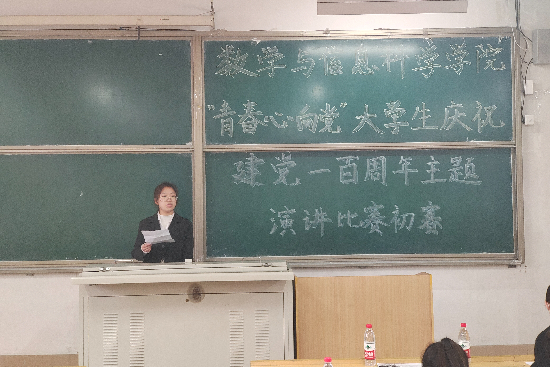 数学与信息科学学院
"青春心向党"大学生庆祝
建党一百周年主题
演讲比赛初赛